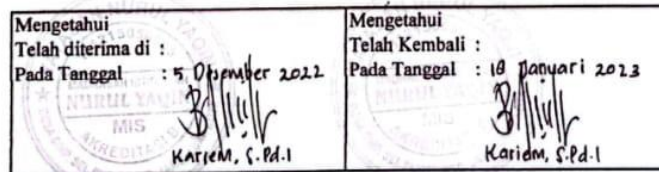 Mengetahui
Telah diterima di :
Pada Tanggal : 5 Desember 2022
NURUL YAQIN
MIS
Kariem, S.Pd.I
Mengetahui
Telah Kembali :
Pada Tanggal : 18 Januari 2023
NURUL YAQIN
MIS
Kariem, S.Pd.I